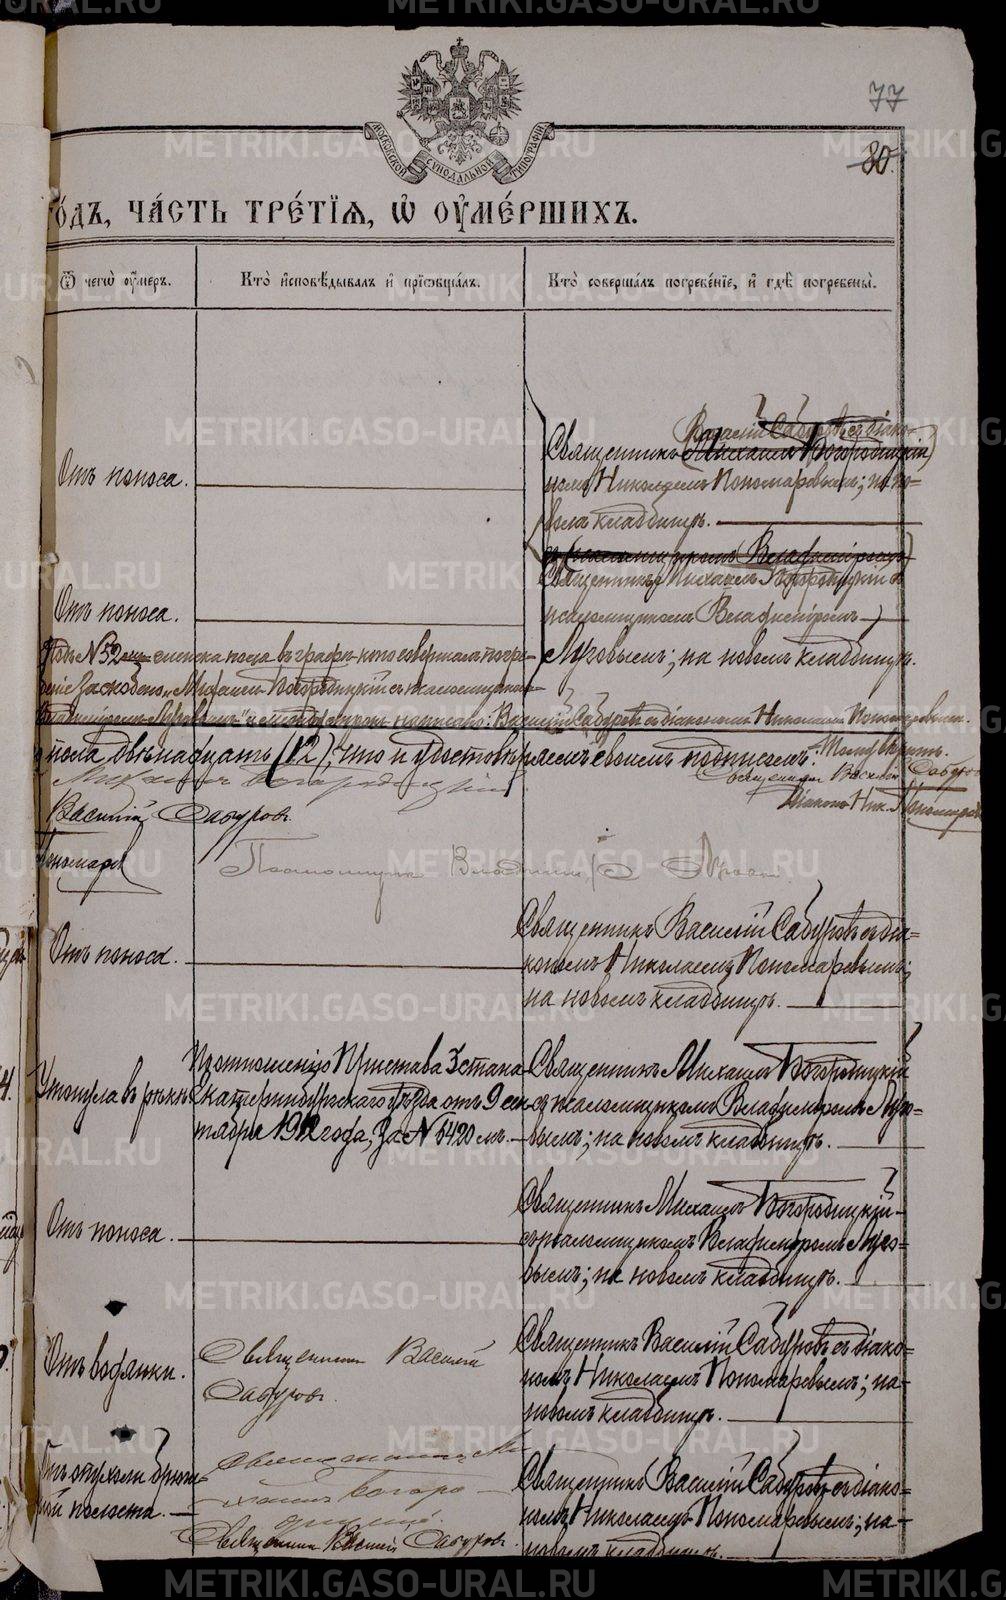 77
80.
МОСКОВСКОЙ СѴНОДАЛЬНОЙ ТИПОГРАФІИ
ГО́ДЪ, ЧА́СТЬ ТРЕ́ТІѦ, Ѡ҆ ОУ҆МЕ́РШИХЪ.
Ѿ чегѡ̀ оу҆́меръ.
Кто̀ и҆сповѣ́дывалъ и҆ прїѡбща́лъ.
Кто̀ соверша́лъ погребе́нїе, и҆ гдѣ̀ погребены̀.
Василій Сабуровъ съ діако-
Отъ поноса.
Священникъ (Михаилъ Богородицкій)
номъ Николаемъ Пономаревымъ; на но-
вомъ кладбищѣ.
Отъ поноса.
съ (псаломщикомъ Владиміромъ)
Священникъ Михаилъ Богородицкій съ
псаломщикомъ Владиміромъ
Луговымъ; на новомъ кладбищѣ.
Подъ № 52 женска пола въ графѣ кто совершалъ погре-
беніе зачеркнуто „Михаилъ Богородицкій съ псаломщикомъ
Владиміромъ Луговымъ" и надписано: Василій Сабуровъ съ діакономъ Николаемъ Пономаревымъ.
пола двѣнадцать (12), что и удостовѣряемъ своимъ подписомъ.
Священникъ Василій Сабуровъ
Михаилъ Богородицкій
Діаконъ Ник. Пономаревъ
Василій Сабуровъ.
Пономаревъ
Псаломщикъ Владиміръ Луговъ
Отъ поноса.
Священникъ Василій Сабуровъ съ діа-
кономъ Николаемъ Пономаревымъ;
на новомъ кладбищѣ.
Утонула въ рѣкѣ
По отношенію Пристава 3 стана
Екатеринбургскаго уѣзда отъ 9 сен-
тября 1912 года, за № 6420 мъ.
Священникъ Михаилъ Богородицкій
съ псаломщикомъ Владиміромъ Луго-
вымъ; на новомъ кладбищѣ.
Отъ поноса.
Священникъ Михаилъ Богородицкій
съ псаломщикомъ Владиміромъ Луго-
вымъ; на новомъ кладбищѣ.
Отъ водянки.
Священникъ Василій
Сабуровъ.
Священникъ Василій Сабуровъ съ діако-
номъ Николаемъ Пономаревымъ; на
новомъ кладбищѣ.
Отъ опухоли брюш-
ной полости.
Священникъ Ми-
хаилъ Богоро-
дицкій.
Священникъ Василій Сабуровъ.
Священникъ Василій Сабуровъ съ діако-
номъ Николаемъ Пономаревымъ; на
новомъ кладбищѣ.
METRIKI.GASO-URAL.RU